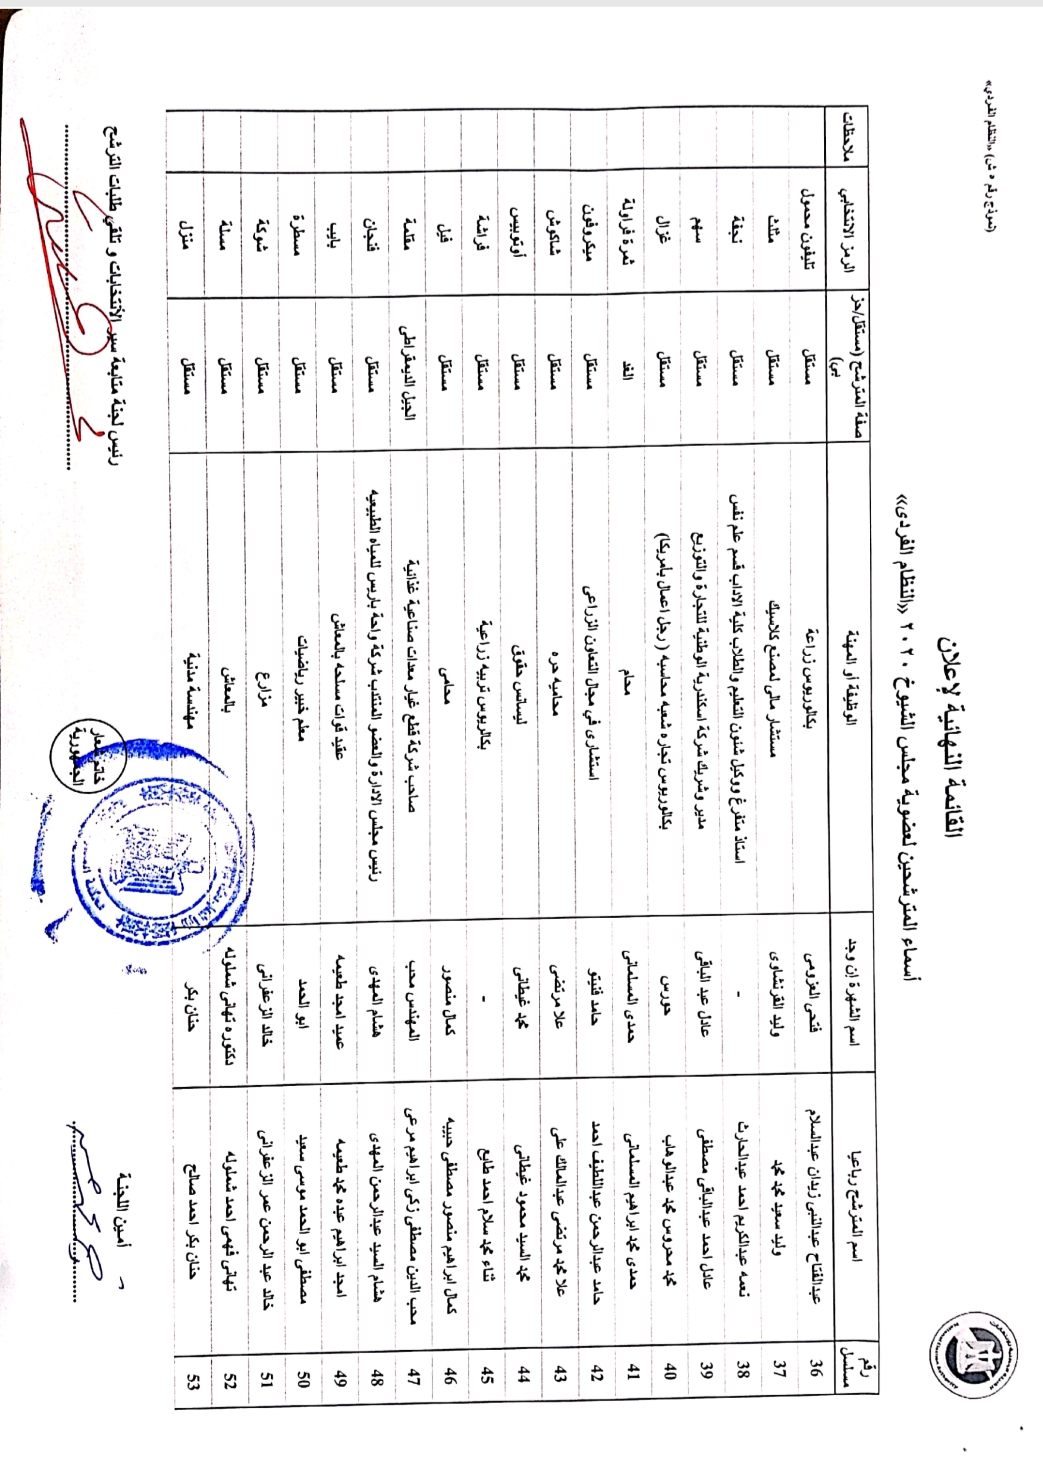 (نموذج رقم ٥ ش) «النظام الفردي»
القائمة النهائية لإعلان
أسماء المترشحين لعضوية مجلس الشيوخ ٢٠٢٠ «النظام الفردى»
رقم مسلسل | اسم المترشح رباعيا | اسم الشهرة إن وجد | الوظيفة أو المهنة | صفة المترشح (مستقل/حزبى) | الرمز الانتخابي | ملاحظات
36 | عبدالفتاح عبدالنبى زيدان عبدالسلام | فتحى العزومى | بكالوريوس زراعة | مستقل | تليفون محمول
37 | وليد سعيد محمد محمد | وليد القرنشاوى | مستشار مالى لمصنع كلاسيك | مستقل | مثلث
38 | نعمه عبدالكريم احمد عبدالحارث | - | استاذ متفرغ ووكيل شئون التعليم والطلاب كلية الاداب قسم علم نفس | مستقل | نجفة
39 | عادل احمد عبدالباقى مصطفى | عادل عبد الباقى | مدير وشريك شركة اسكندرية الوطنية للتجارة والتوزيع | مستقل | سهم
40 | محمد محروس محمد عبدالوهاب | حورس | بكالوريوس تجاره شعبه محاسبه ( رجل اعمال بأمريكا) | مستقل | غزال
41 | حمدى محمد ابراهيم المسلمانى | حمدى المسلمانى | محام | الغد | ثمرة فراولة
42 | حامد عبدالرحمن عبداللطيف احمد | حامد فنيتو | استشارى في مجال التعاون الزراعى | مستقل | ميكروفون
43 | علا محمد مرتضى عبدالمالك على | علا مرتضى | محاميه حره | مستقل | شاكوش
44 | محمد السيد محمود غيطانى | محمد غيطانى | ليسانس حقوق | مستقل | أوتوبيس
45 | ثناء محمد سلام احمد طايع | - | بكالريوس تربيه زراعية | مستقل | فراشة
46 | كمال ابراهيم منصور مصطفى حبيبه | كمال منصور | محامى | مستقل | فيل
47 | محب الدين مصطفى زكى ابراهيم مرعى | المهندس محب | صاحب شركة قطع غيار معدات صناعية غذائية | الجيل الديمقراطى | مقلمة
48 | هشام السيد عبدالرحمن المهدى | هشام المهدى | رئيس مجلس الادارة والعضو المنتدب شركة واحة باريس للمياه الطبيعيه | مستقل | فنجان
49 | امجد ابراهيم عبده محمد طعيمه | عميد امجد طعيمه | عقيد قوات مسلحه بالمعاش | مستقل | بايب
50 | مصطفى ابو الحمد موسى سعيد | ابو الحمد | معلم خبير رياضيات | مستقل | مسطرة
51 | خالد عبد الرحمن عمر الزعفرانى | خالد الزعفرانى | مزارع | مستقل | شوكة
52 | تهانى فهمى احمد شملوله | دكتوره تهانى شملوله | بالمعاش | مستقل | مسلة
53 | حنان بكر احمد صالح | حنان بكر | مهندسة مدنية | مستقل | منزل
أمين اللجنة
خاتم شعار الجمهورية
رئيس لجنة متابعة سير الأنتخابات و تلقي طلبات الترشح